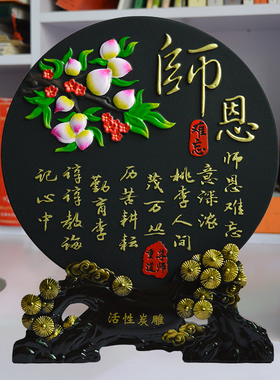 師恩
难忘
师恩难忘
意深浓
桃李人间
茂万丛
历苦耕耘
勤育李
谆谆教诲
记心中
尊师
重道
活性炭雕